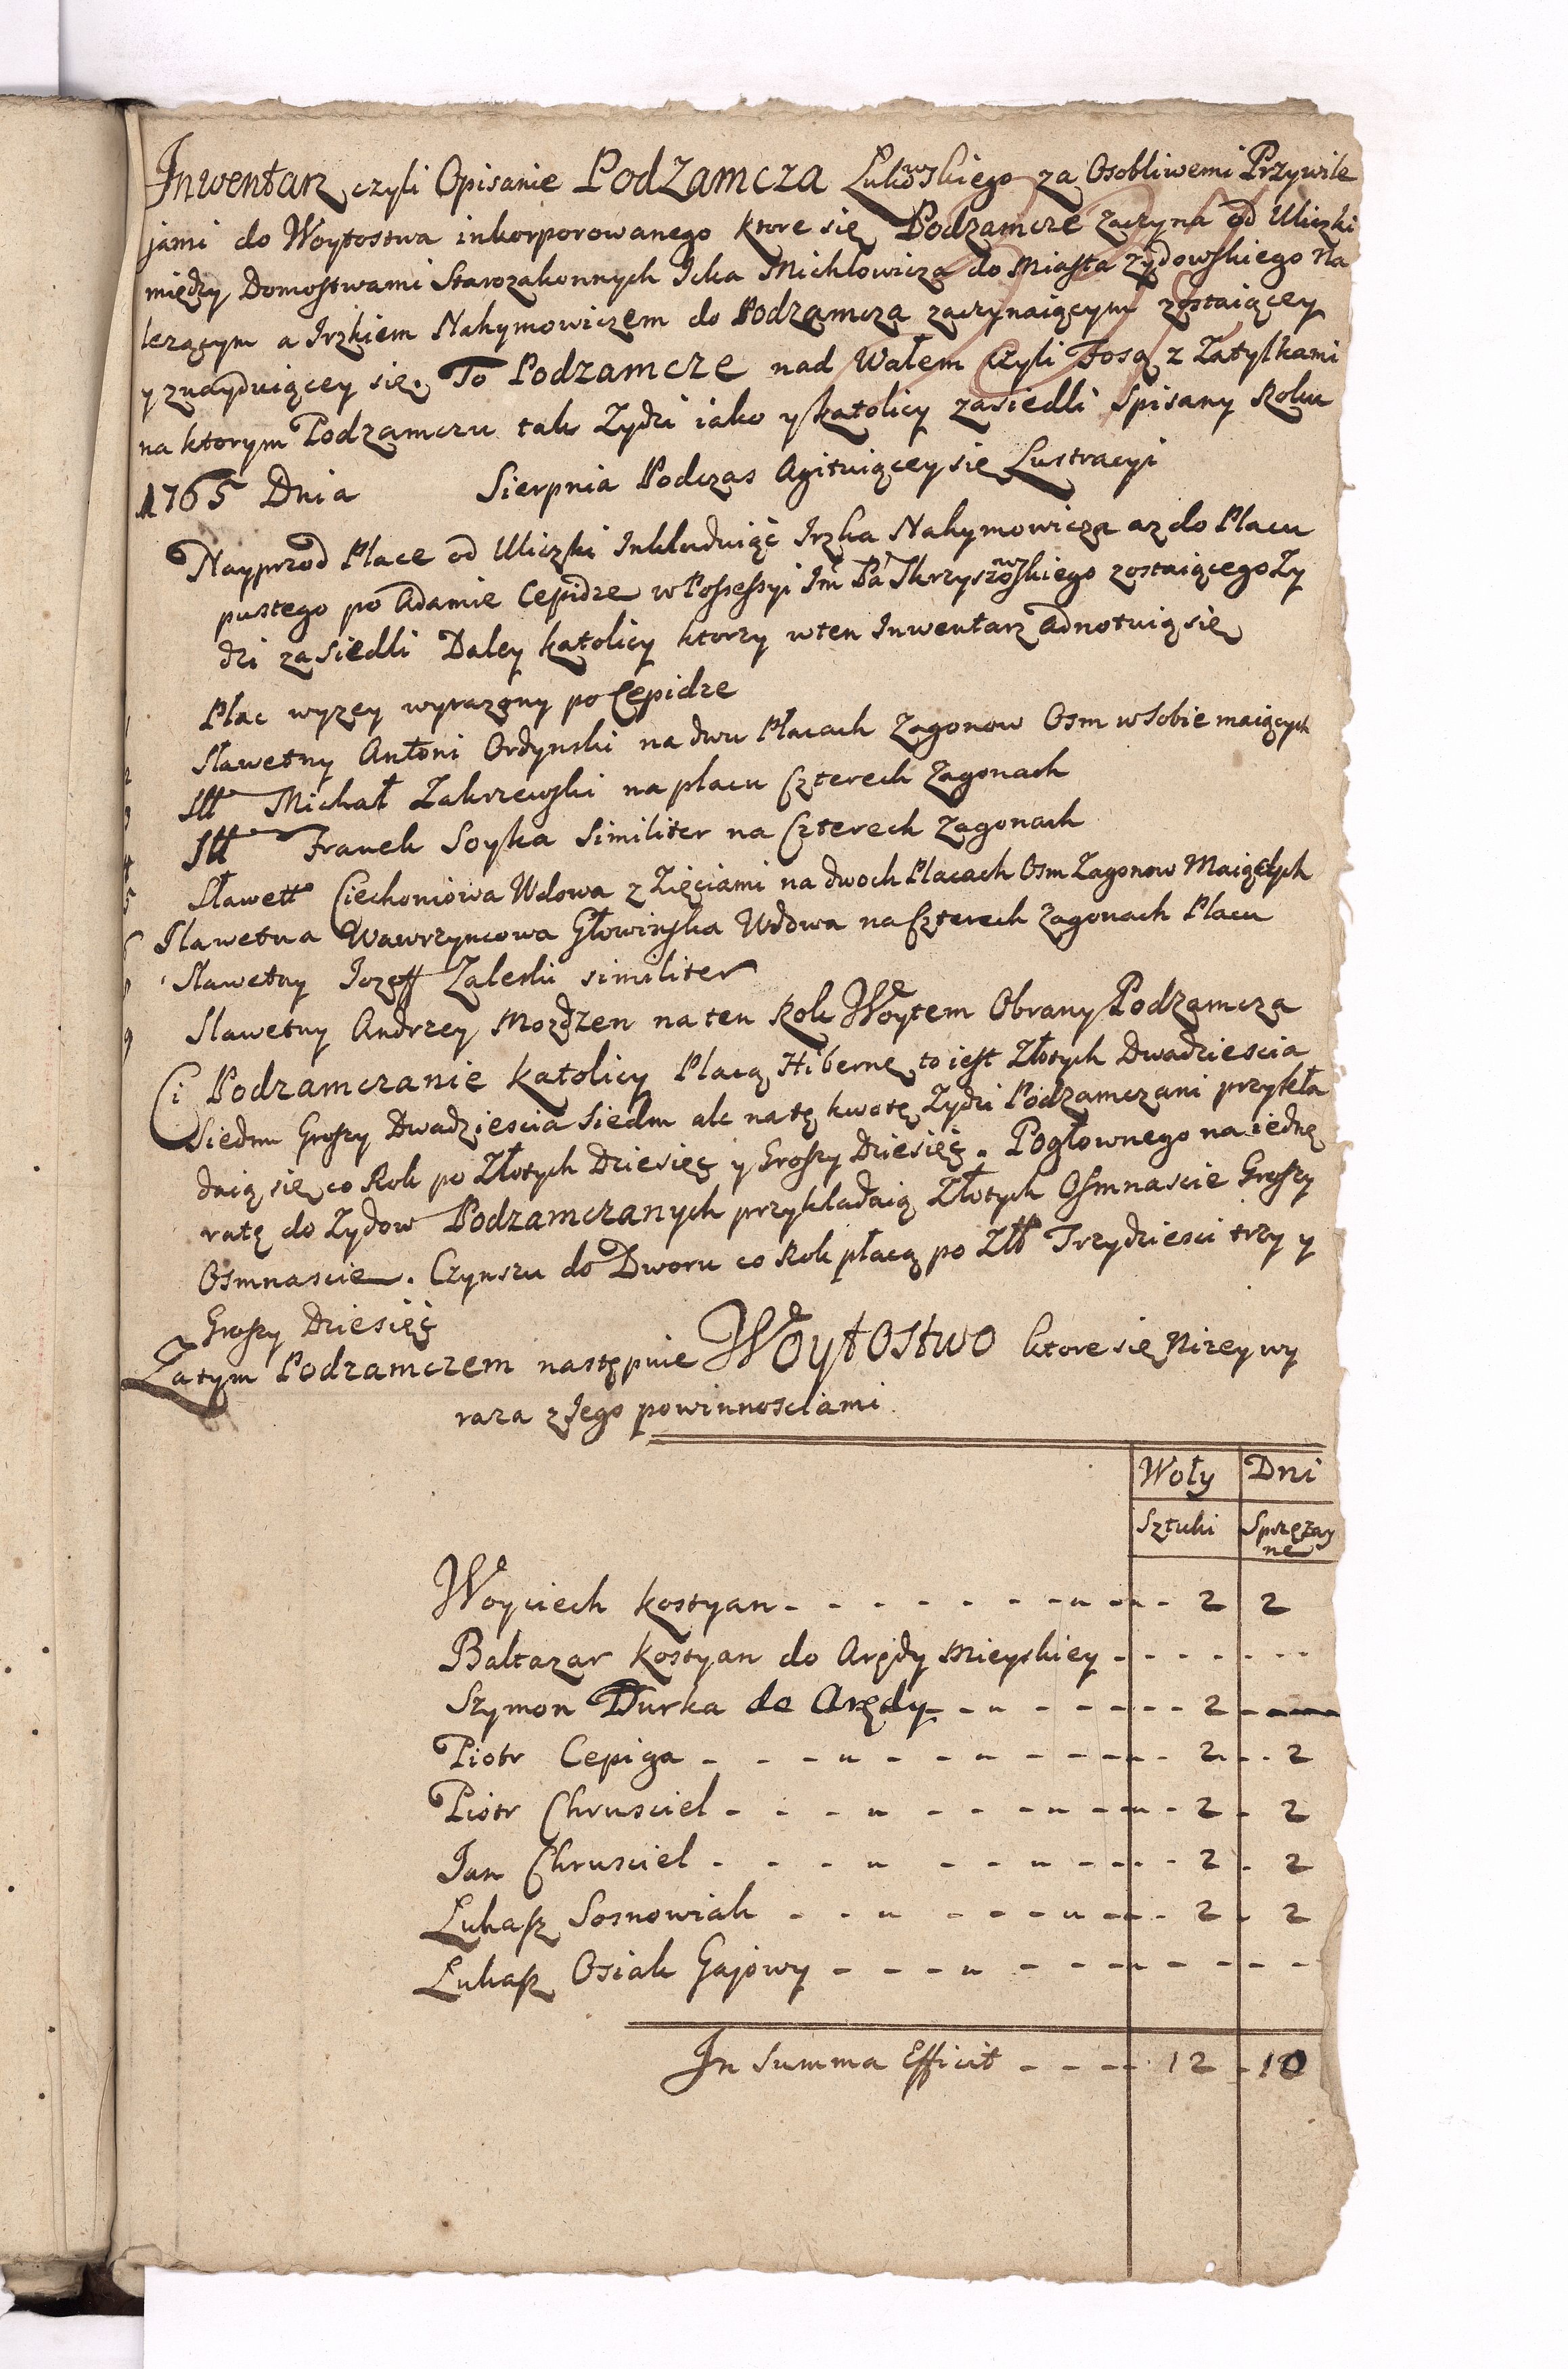 Inwentarz czyli Opisanie Podzamcza Lukowskiego za Osobliwemi Przywile
jami do Woytostwa inkorporowanego ktore się Podzamcze zaczyna od Uliczki
między Domostwami Starozakonnych Icka Michlowicza do Miasta Zydowskiego Na
lezącym a Irzkiem Nahymowiczem do Podzamcza zaczynaiącym zostaiącey
y znayduiącey się. To Podzamcze nad Wałem Czyli Fosą z Zatylkami
na ktorym Podzamczu tak Zydzi iako y katolicy zasiedli Spisany Roku
1765 Dnia Sierpnia Podczas Agituiącey się Lustracyi
Nayprzod Place od Uliczki Inkluduiąc Irzka Nahymowicza az do Placu
pustego po Adamie Cepidze w Possessyi Im Pa Skrzyszowskiego zostaiącego Zy
dzi zasiedli Daley katolicy ktorzy w ten Inwentarz Adnotuią się
Plac wyzey wyrazony po Cepidze
Sławetny Antoni Ordynski na dwu Płacach Zagonow Osm w Sobie maiących
Sll Michał Zakrzewski na placu Czterech Zagonach
Sll Franek Soyka Similiter na Czterech Zagonach
Sławett Ciechoniowa Wdowa z Zięciami na dwoch Placach Osm Zagonow Maiących
Slawetna Wawrzyncowa Głowinska Wdowa na Czterech Zagonach Placu
Sławetny Jozeff Zaleski similiter
Slawetny Andrzey Mozdzen na ten Rok Woytem Obrany Podzamcza
Ci Podzamczanie katolicy Placą Hibernę to iest Złotych Dwadziescia
Siedm Groszy Dwadziescia Siedm ale na tę kwotę Zydzi Podzamczani przykła
daią się co Rok po Złotych Dziesięc y Groszy Dziesięć. Pogłownego na iednę
ratę do Zydow Podzamczanych przykładaią Złotych Osmnascie Groszy
Osmnascie. Czynszu do Dworu co Rok płacą po Złł Trzydziesci trzy y
Groszy Dziesięć
Za tym Podzamczem następuie Woytostwo ktore się Nizey wy
raza z Jego powinnosciami
Woły Dni
Sztuki Sprzęzay
ne
Woyciech Kostyan 2 2
Baltazar Kostyan do Arędy Mieyskiey
Szymon Durka do Arędy 2
Piotr Cepiga 2 2
Piotr Chrusciel 2 2
Jan Chrusciel 2 2
Lukasz Sosnowiak 2 2
Lukasz Osiak Gajowy
In Summa Efficit 12 10